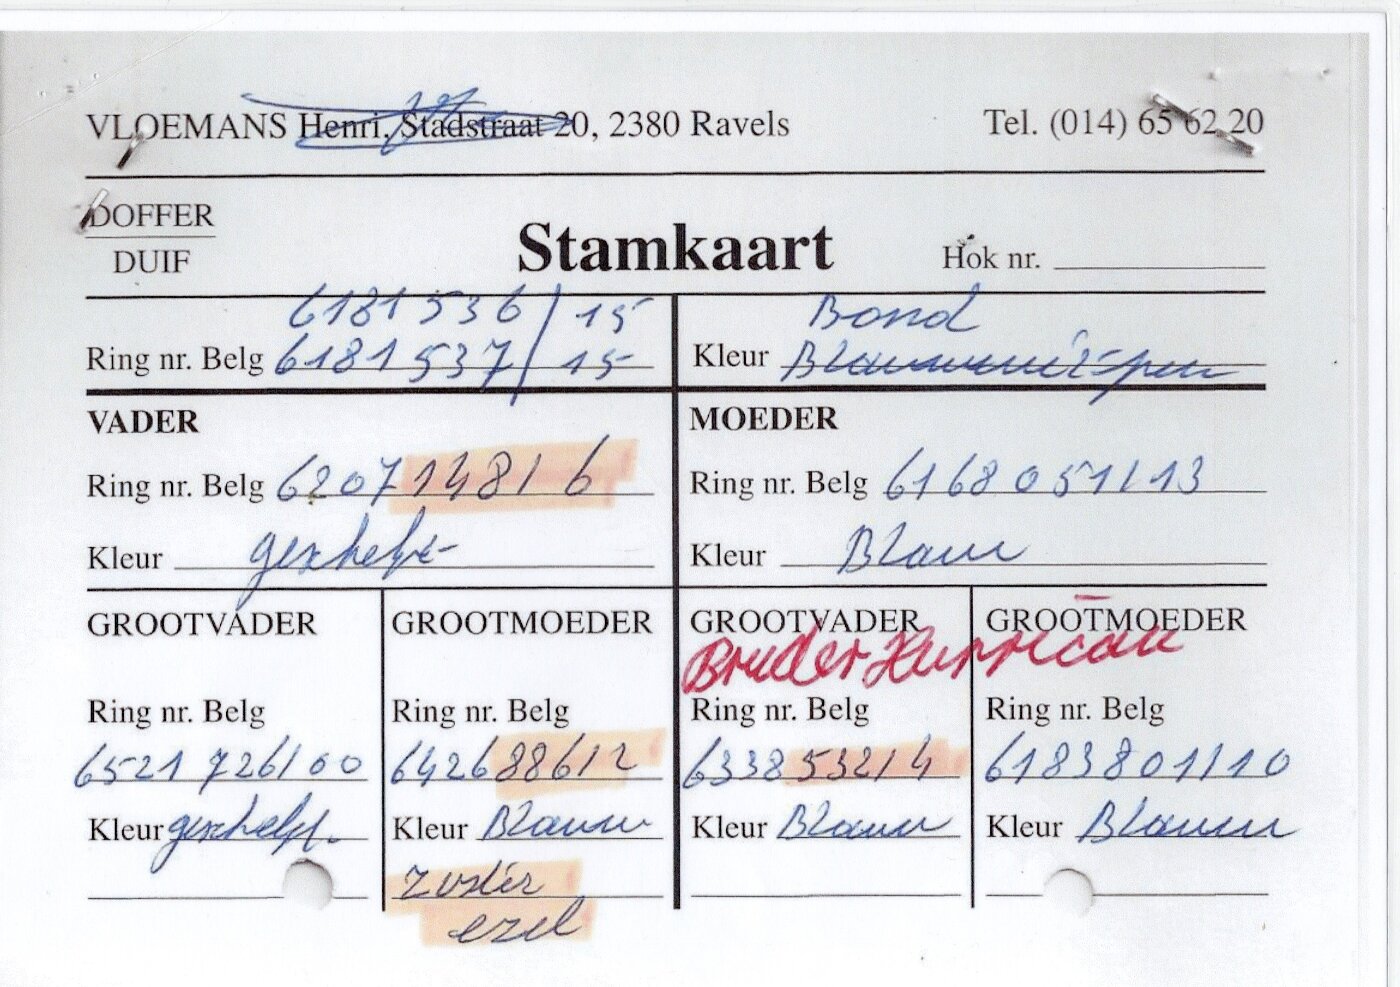 VLOEMANS Henri, Stadstraat 20, 2380 Ravels Tel. (014) 65 62 20
DOFFER
DUIF
Stamkaart
Hok nr.
6181536/15
Ring nr. Belg 6181537/15
Bond
Kleur
VADER
Ring nr. Belg 6207148/6
Kleur geschelpt
MOEDER
Ring nr. Belg 6168051/13
Kleur Blauw
GROOTVADER
Ring nr. Belg
6521726/00
Kleur geschelpt
GROOTMOEDER
Ring nr. Belg
6426886/2
Kleur Blauw
zuster
ezel
GROOTVADER
Bruder Hurrican
Ring nr. Belg
6338532/4
Kleur Blauw
GROOTMOEDER
Ring nr. Belg
6183801/10
Kleur Blauw